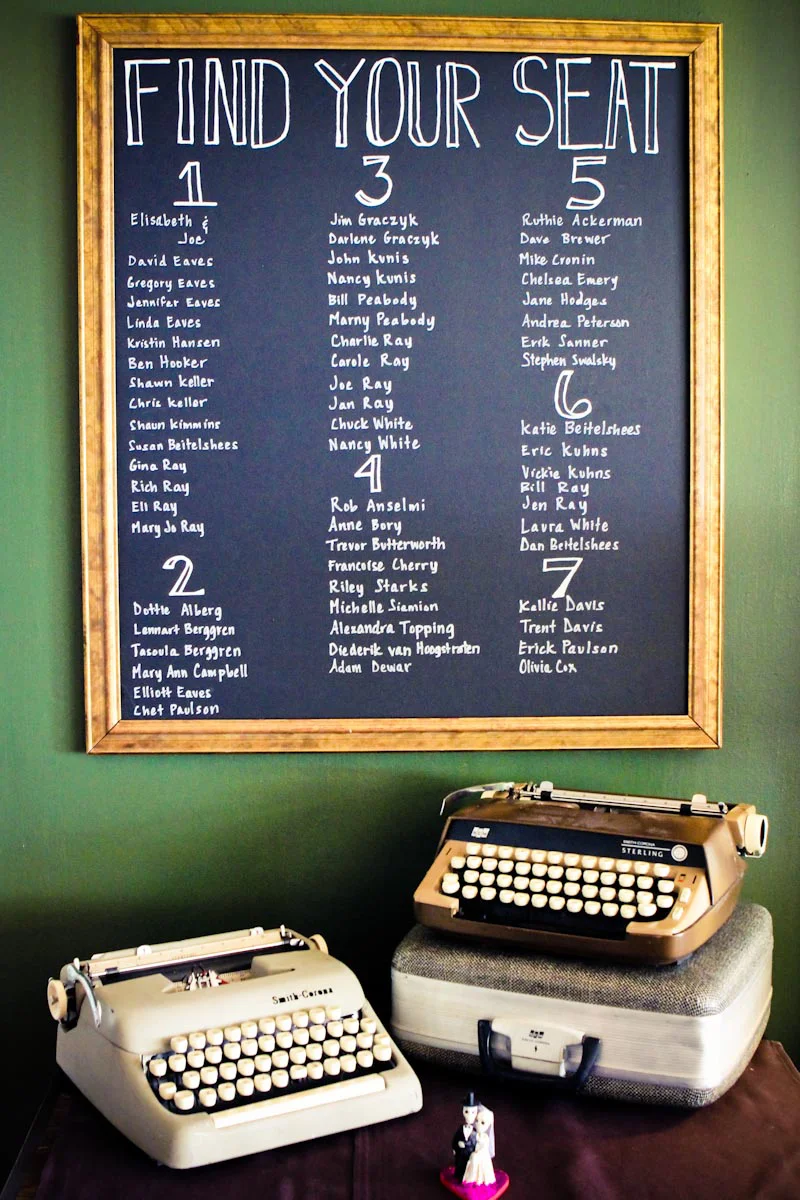 FIND YOUR SEAT
1
Elisabeth &
Joe
David Eaves
Gregory Eaves
Jennifer Eaves
Linda Eaves
Kristin Hansen
Ben Hooker
Shawn Keller
Chris Keller
Shaun Kimmins
Susan Beitelshees
Gina Ray
Rich Ray
Eli Ray
Mary Jo Ray
2
Dottie Alberg
Lennart Berggren
Tasoula Berggren
Mary Ann Campbell
Elliott Eaves
Chet Paulson
3
Jim Graczyk
Darlene Graczyk
John Kunis
Nancy Kunis
Bill Peabody
Marny Peabody
Charlie Ray
Carole Ray
Joe Ray
Jan Ray
Chuck White
Nancy White
4
Rob Anselmi
Anne Bory
Trevor Butterworth
Francoise Cherry
Riley Starks
Michelle Siemion
Alexandra Topping
Diederik van Hoogstraten
Adam Dewar
5
Ruthie Ackerman
Dave Brewer
Mike Cronin
Chelsea Emery
Jane Hodges
Andrea Peterson
Erik Sanner
Stephen Swalsky
6
Katie Beitelshees
Eric Kuhns
Vickie Kuhns
Bill Ray
Jen Ray
Laura White
Dan Beitelshees
7
Kallie Davis
Trent Davis
Erick Paulson
Olivia Cox
SMITH-CORONA
STERLING
Smith-Corona